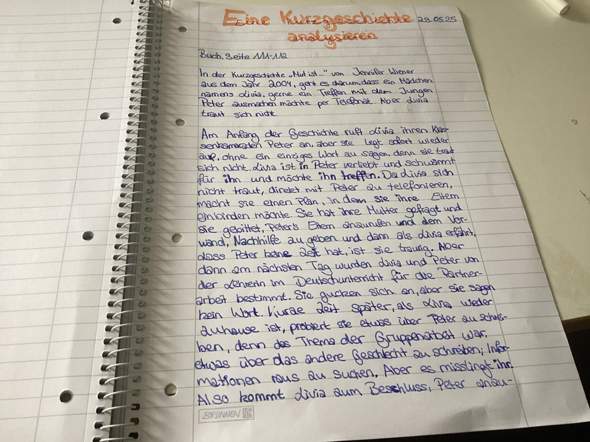 Eine Kurzgeschichte 29.05.25
analysieren
Buch, Seite 111-112
In der Kurzgeschichte „Mut ist..." von Jennifer Wiener
aus dem Jahr 2004, geht es darum, dass ein Mädchen
namens Livia, gerne ein Treffen mit dem Jungen
Peter ausmachen möchte per Telefonat. Aber Livia
traut sich nicht.
Am Anfang der Geschichte ruft Livia ihren Klas-
senkameraden Peter an, aber sie legt sofort wieder
auf, ohne ein einziges Wort zu sagen, denn sie traut
sich nicht. Livia ist in Peter verliebt und schwärmt
für ihn und möchte ihn treffen. Da Livia sich
nicht traut, direkt mit Peter zu telefonieren,
macht sie einen Plan, in dem sie ihre Eltern
einbinden möchte. Sie hat ihre Mutter gefragt und
sie gebittet, Peters Eltern anzurufen und dem Vor-
wand, Nachhilfe zu geben und dann als Livia erfährt,
dass Peter keine Zeit hat, ist sie traurig. Aber
dann am nächsten Tag wurden Livia und Peter von
der Lehrerin im Deutschunterricht für die Partner-
arbeit bestimmt. Sie gucken sich an, aber sie sagen
kein Wort. Kurze Zeit später, als Livia wieder
zuhause ist, probiert sie etwas über Peter zu schrei-
ben, denn das Thema der Gruppenarbeit war,
etwas über das andere Geschlecht zu schreiben, Infor-
mationen raus zu suchen. Aber es misslingt ihr.
Also kommt Livia zum Beschluss, Peter anzu-
BRUNNEN